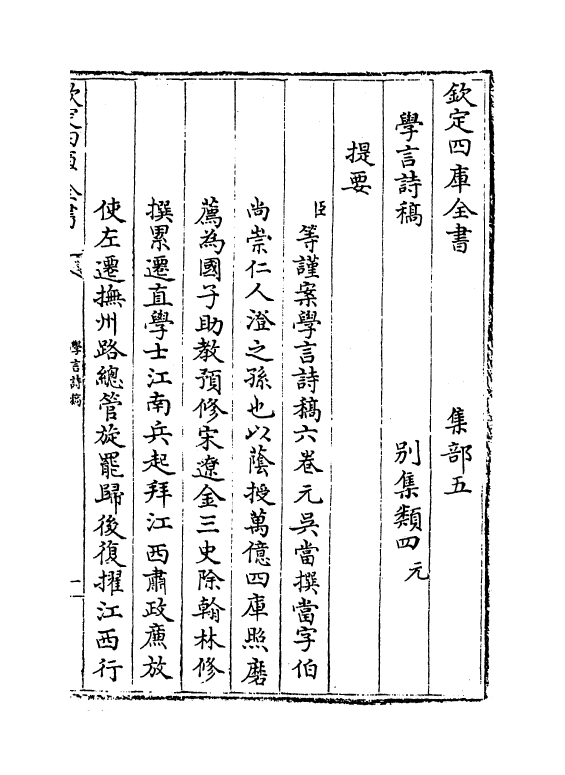 欽定四庫全書 集部五
學言詩稿 别集類四 元
提要
臣等謹案學言詩稿六卷元吳當撰當字伯
尚崇仁人澄之孫也以蔭授萬億四庫照磨
薦為國子助教預修宋遼金三史除翰林修
撰累遷直學士江南兵起拜江西肅政廉放
使左遷撫州路總管旋罷歸後復擢江西行
欽定四庫全書
學言詩稿
一